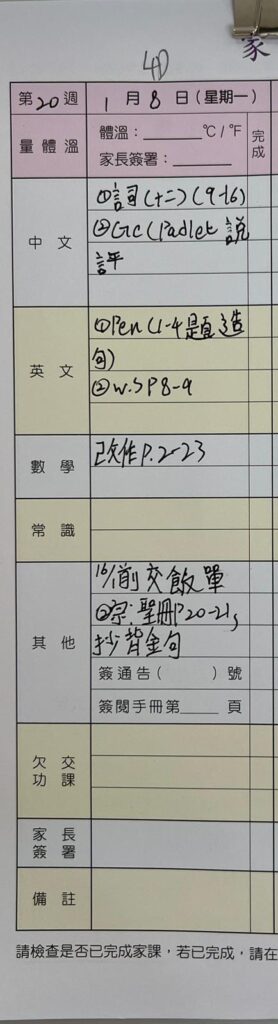 家
4D
第20週 1月8日(星期一)
量體溫 體溫:______℃/℉ 完成
家長簽署:______
中文 ①詞(十二)(9-16)
②GC(Padlet 說
評
英文 ①Pen(1-4題造
句)
②W.S P8-9
數學 改作P.2-23
常識
其他 16/1前交飯單
②宗:聖冊P20-21,
抄背金句
簽通告( )號
簽閱手冊第____頁
欠交功課
家長簽署
備註
請檢查是否已完成家課,若已完成,請在